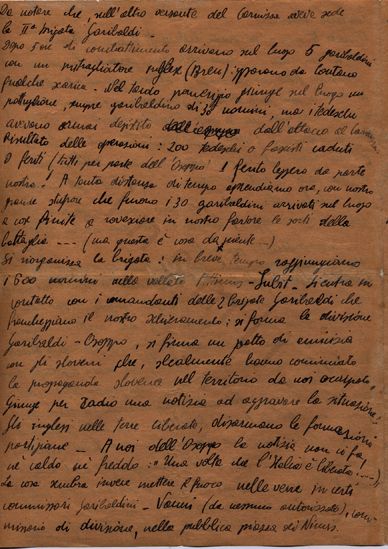 Da notare che, sull'altro versante del Carnizza aveva sede
la IIª brigata Garibaldi -
Dopo 5 ore di combattimento arrivano sul luogo 5 garibaldini
con un mitragliatore (Bren): sparano da lontano
qualche scarica. Nel tardo pomeriggio giunge sul luogo un
pattuglione, sempre garibaldino di 30 uomini, ma i tedeschi
avevano ormai desistito dall'attacco al
Risultato delle operazioni: 200 tedeschi o fascisti caduti
o feriti (tutti per parte dell'Osoppo) 1 ferito leggero da parte
nostra. A tanta distanza di tempo apprendiamo ora, con nostro
grande stupore che furono i 30 garibaldini arrivati sul luogo
a cose finite a rovesciare in nostro favore le sorti della
battaglia --- (ma questa è cosa da niente...)
Si riorganizza la brigata: in breve tempo raggiungiamo
i 500 uomini nella vallata Attimis - Subit - Si entra in
contatto con i comandanti delle 2 brigate Garibaldi che
fiancheggiano il nostro schieramento: si forma la divisione
Garibaldi - Osoppo, si firma un patto di amicizia
con gli sloveni che, slealmente hanno cominciato
la propaganda slovena nel territorio da noi occupato.
Giunge per radio una notizia ad aggravare la situazione:
Gli inglesi nelle terre liberate, disarmano le formazioni
partigiane - A noi dell'Osoppo la notizia non ci fa
nè caldo nè freddo: Una volta che l'Italia è liberata!...)
La cosa sembra invece mettere il fuoco nelle vene in certi
commissari garibaldini - Vanni (da nessuno autorizzato), com-
missario di divisione, nella pubblica piazza di Nimis.